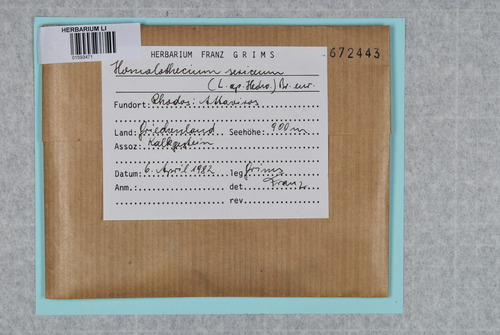 HERBARIUM LI
01593471
HERBARIUM FRANZ GRIMS
672443
Homalothecium sericeum
(L. ap. Hedw.) Br. eur.
Fundort: Rhodos: Attaviros
Land: Griechenland Seehöhe: 900 m
Assoz: Kalkgestein
Datum: 6. April 1982 leg Grims
Anm.: det Franz
rev.